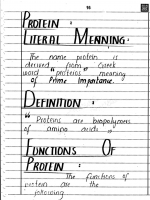 PROTEIN :
LITERAL MEANING:
The name protein is
derived from Greek
word "proteios" meaning
of Prime Importance.
DEFINITION :
"Proteins are biopolymers
of amino acids"
FUNCTIONS OF
PROTEIN :
The functions of
protein are the
following